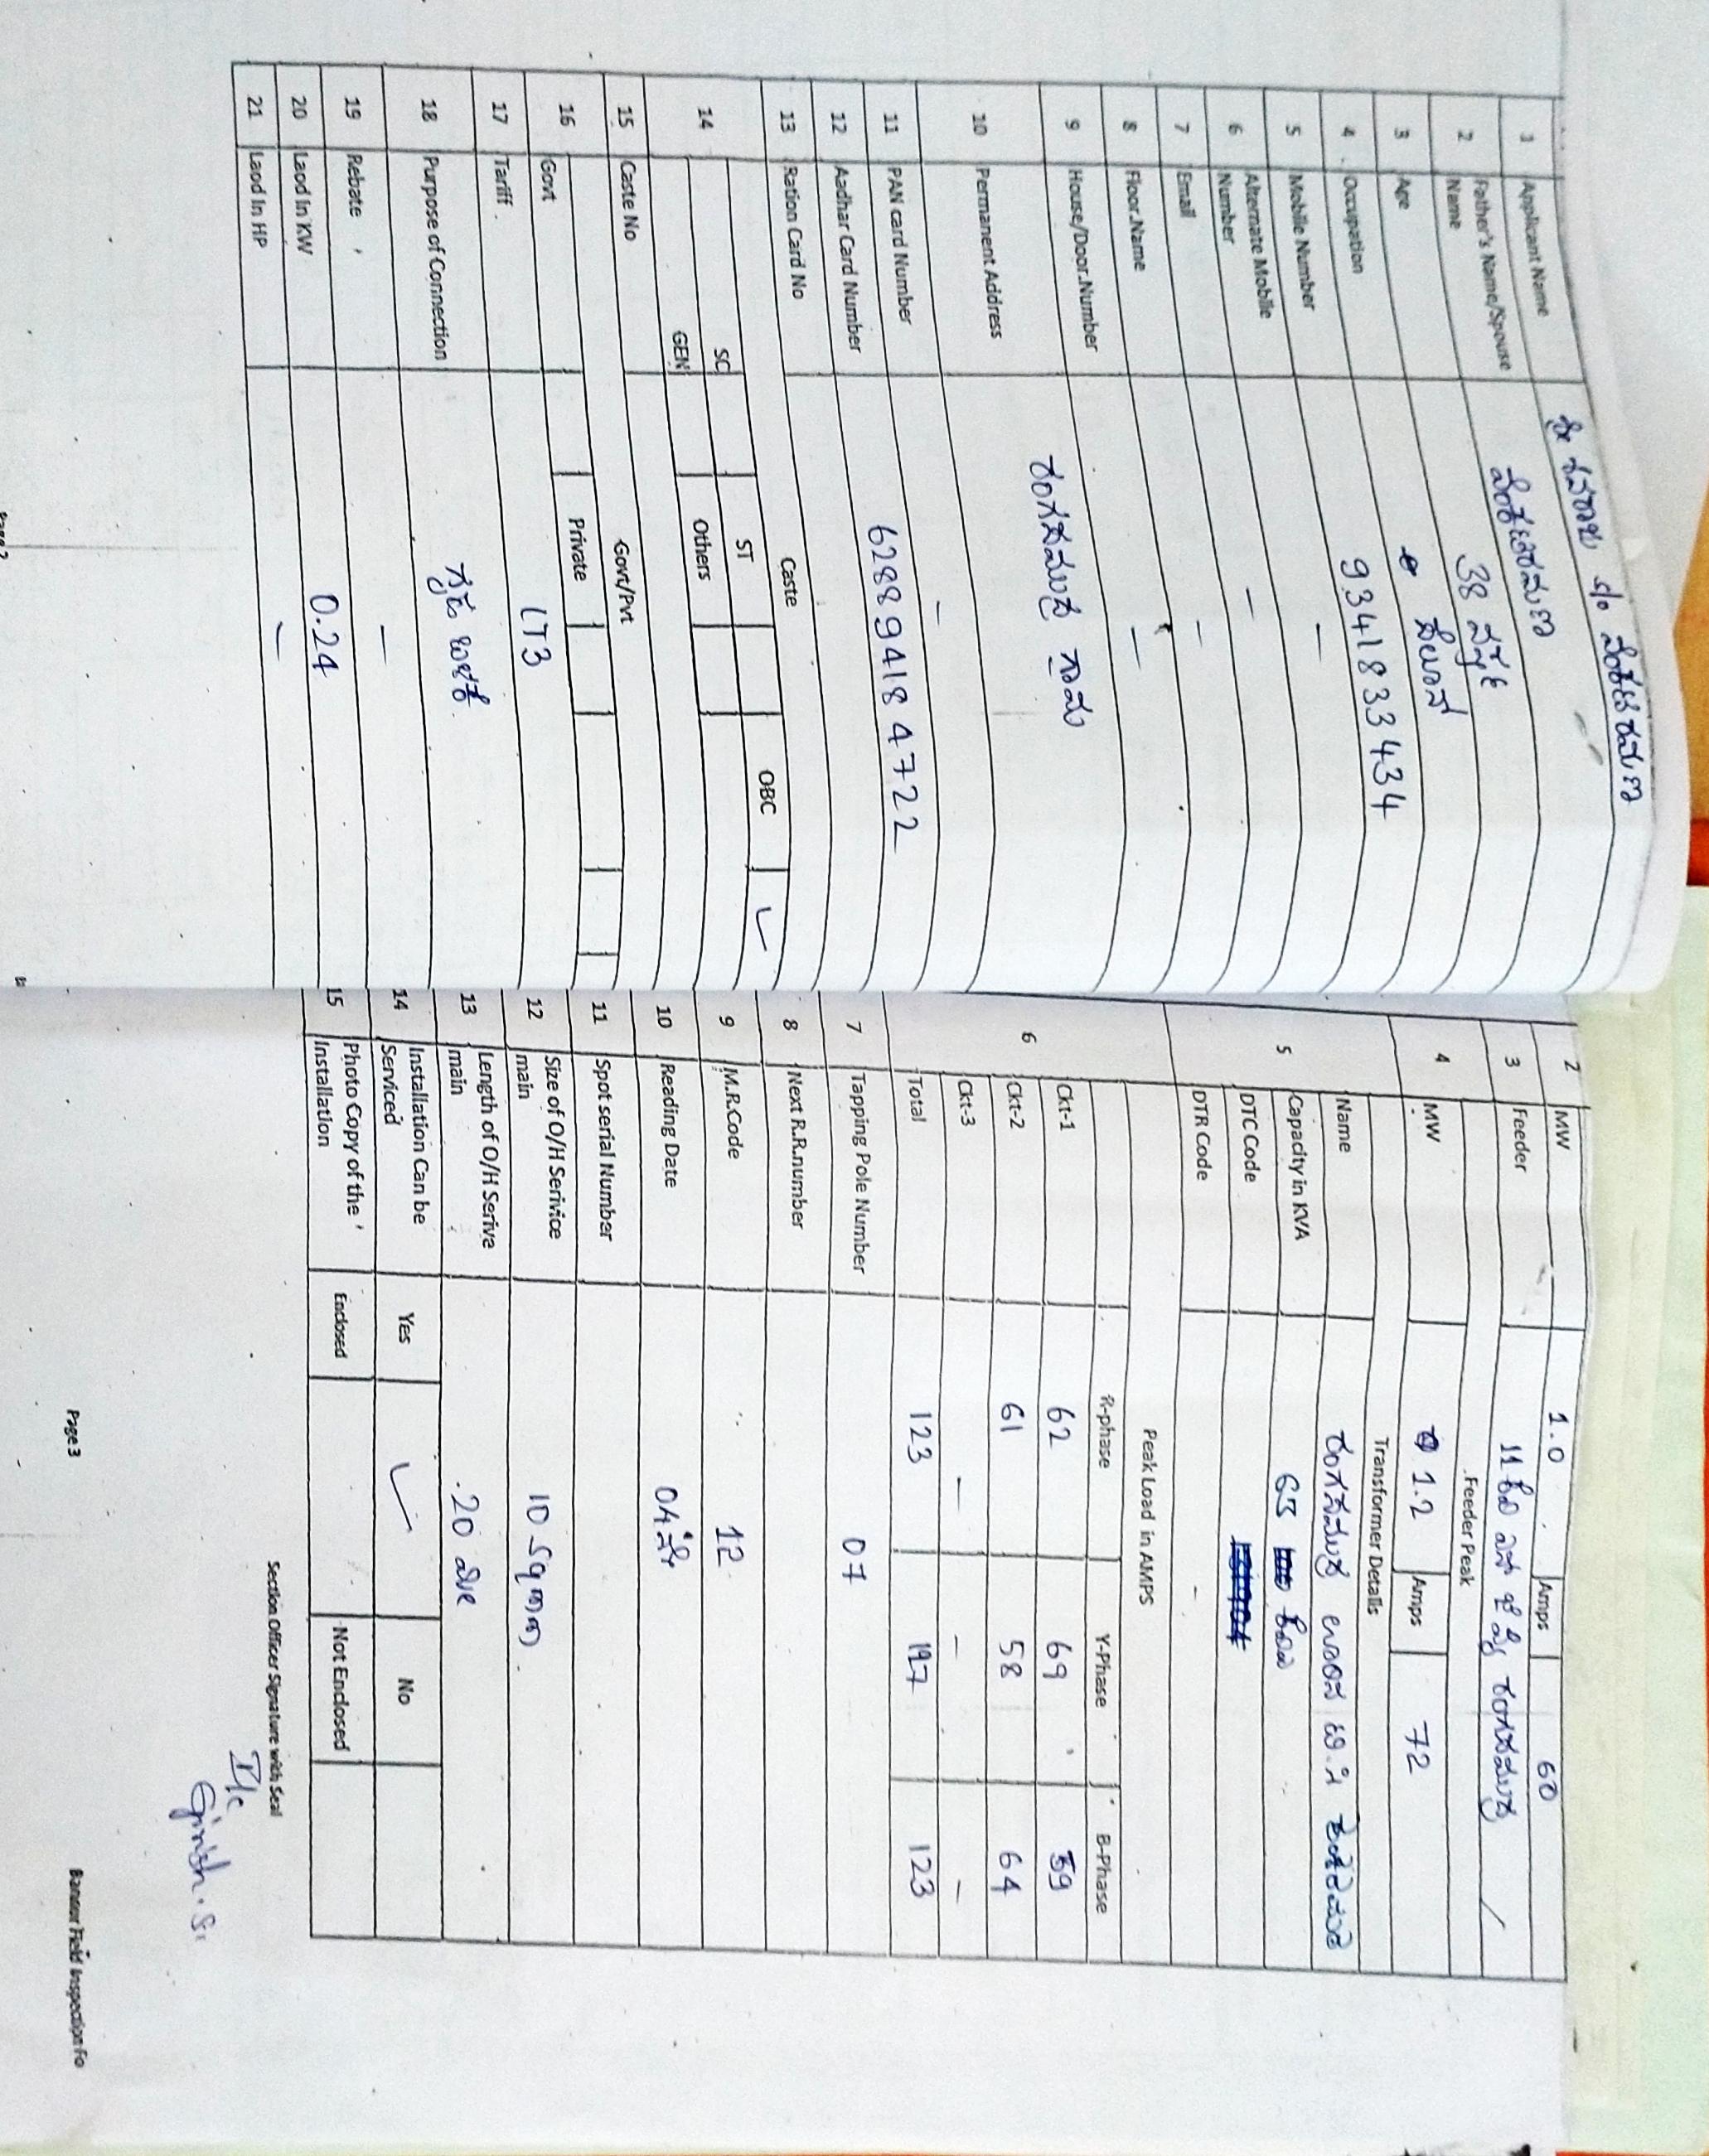 1 Applicant Name ಶ್ರೀ ಬಸರಾಜ S/o ವೆಂಕಟರಮಣ
2 Father's Name/Spouse Name ವೆಂಕಟರಮಣ
3 Age 38 ವರ್ಷ
4 Occupation
5 Mobile Number 9341833434
6 Alternate Mobile Number —
7 Email —
8 Floor.Name —
9 House/Door.Number —
10 Permanent Address ರಂಗಸಮುದ್ರ ಗ್ರಾಮ
11 PAN card Number —
12 Aadhar Card Number 6288 9418 4722
13 Ration Card No
14 Caste
SC ST OBC ✓
GEN Others
15 Caste No
16 Govt/Pvt
Govt Private
17 Tariff LT3
18 Purpose of Connection
19 Rebate —
20 Laod In KW 0.24
21 Laod In HP —
2 MW 1.0 Amps 60
3 Feeder ರಂಗಸಮುದ್ರ
4 Feeder Peak
MW 1.2 Amps 72
5 Transformer Details
Name ರಂಗಸಮುದ್ರ
Capacity in KVA 63
DTC Code
DTR Code -
6 Peak Load in AMPS
R-phase Y-Phase B-Phase
Ckt-1 62 69 59
Ckt-2 61 58 64
Ckt-3 — — —
Total 123 127 123
7 Tapping Pole Number 07
8 Next R.R.number
9 M.R.Code 12
10 Reading Date 04
11 Spot serial Number
12 Size of O/H Serivice main 10 sqmm
13 Length of O/H Seriva main 20 ಮೀ
14 Installation Can be Serviced Yes ✓ No
15 Photo Copy of the Installation Enclosed Not Enclosed
Section Officer Signature with Seal
I/c
Girish. S.
Page 3